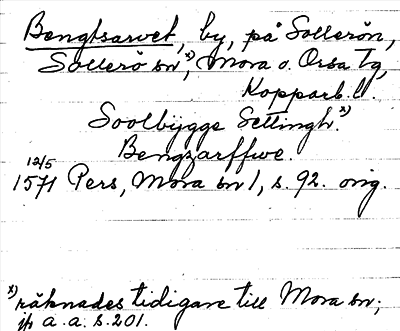 Bengtsarvet, by, på Sollerön,
Sollerö sn,x) Mora o. Orsa tg,
Kopparb. l.
Soolbÿgge Settingh.x)
Bengzarffwe.
12/5
1571 Pers, Mora sn 1, s. 92. orig.
x) räknades tidigare till Mora sn;
jfr a.a. s. 201.